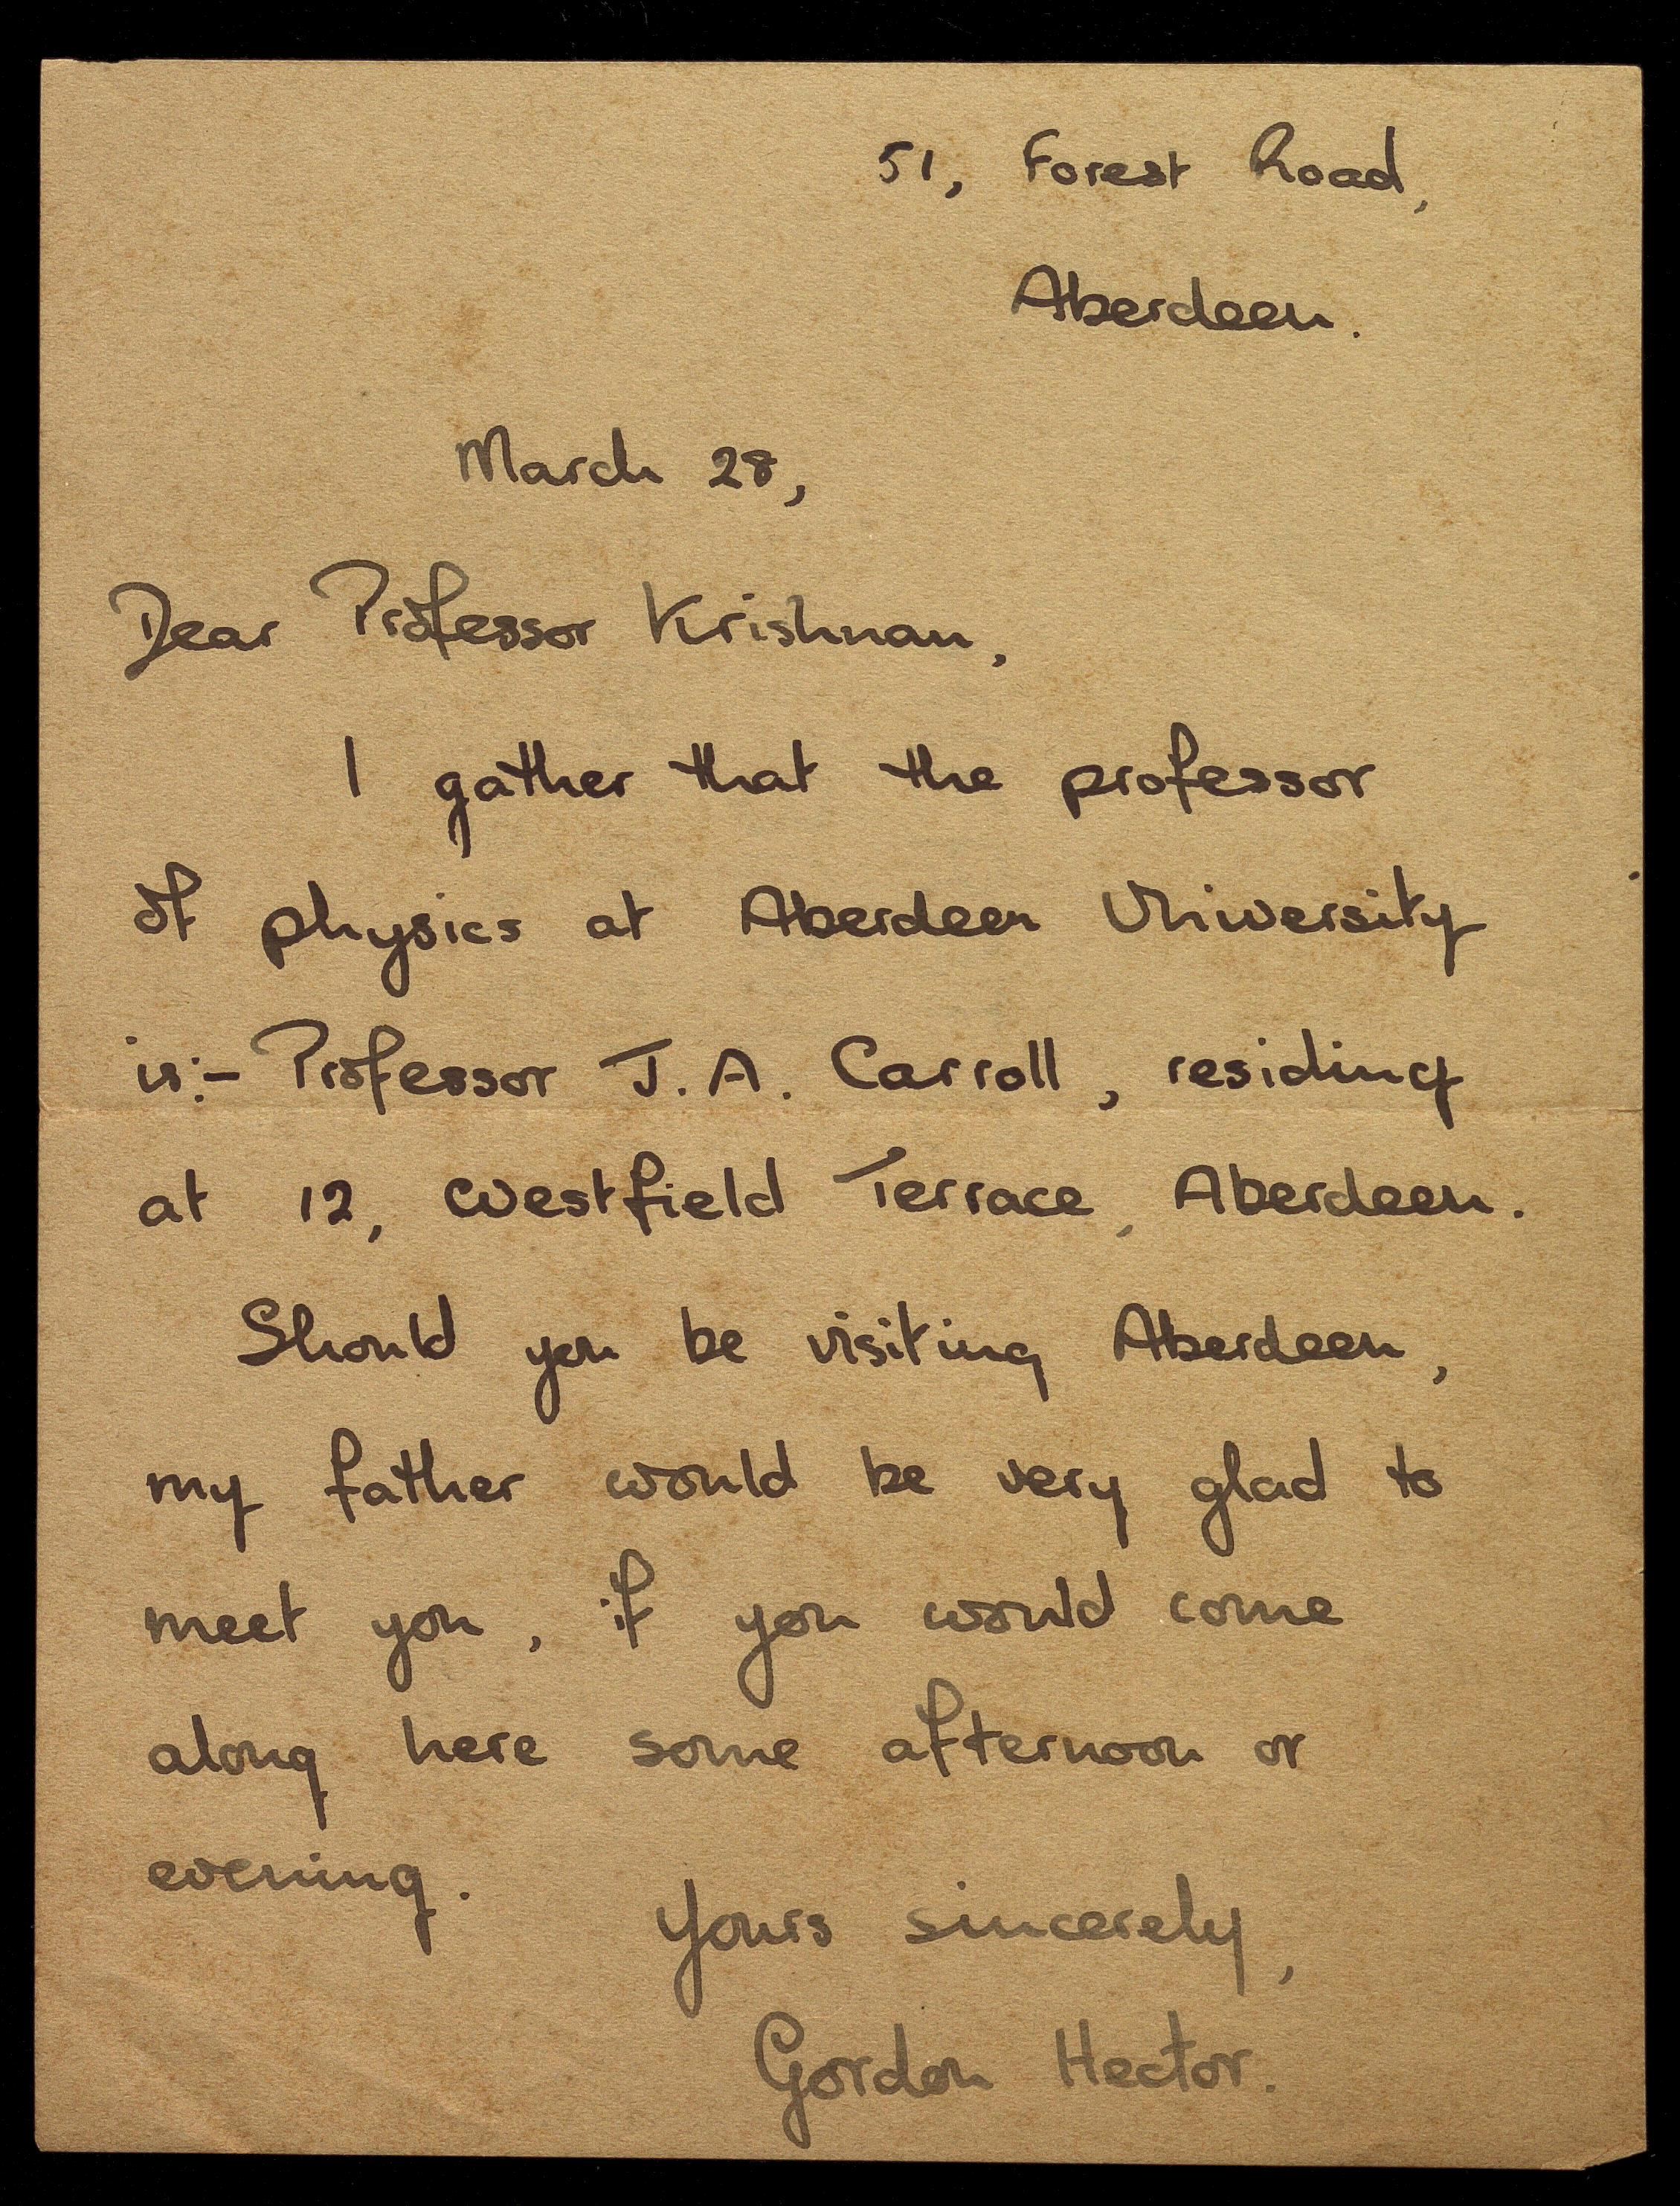 51, Forest Road,
Aberdeen.
March 28,
Dear Professor Krishnan,
I gather that the professor
of physics at Aberdeen University
is:- Professor J.A. Carroll, residing
at 12, Westfield Terrace, Aberdeen.
Should you be visiting Aberdeen,
my father would be very glad to
meet you, if you would come
along here some afternoon or
evening.
Yours sincerely,
Gordon Hector.